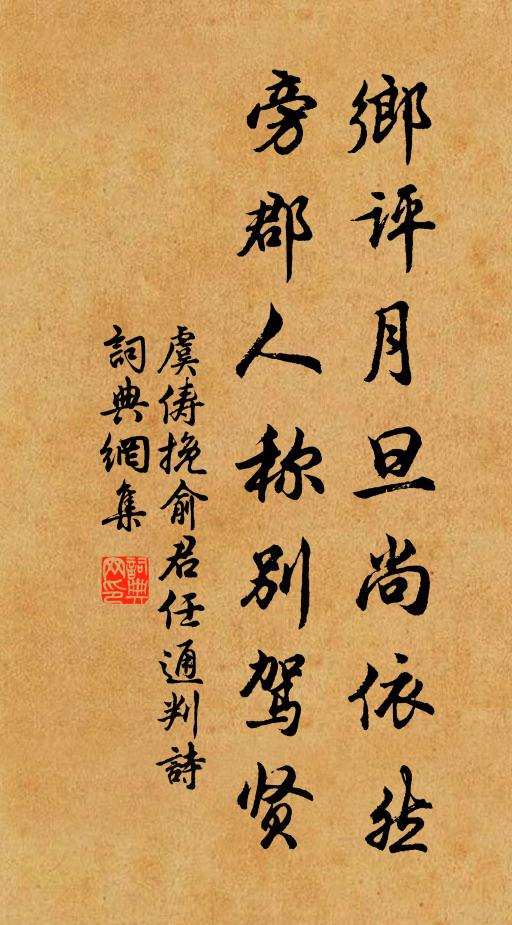 鄉評月旦尚依然
旁郡人称別駕贤
虞儔挽俞君任通判詩
詞典網集
詞典网印